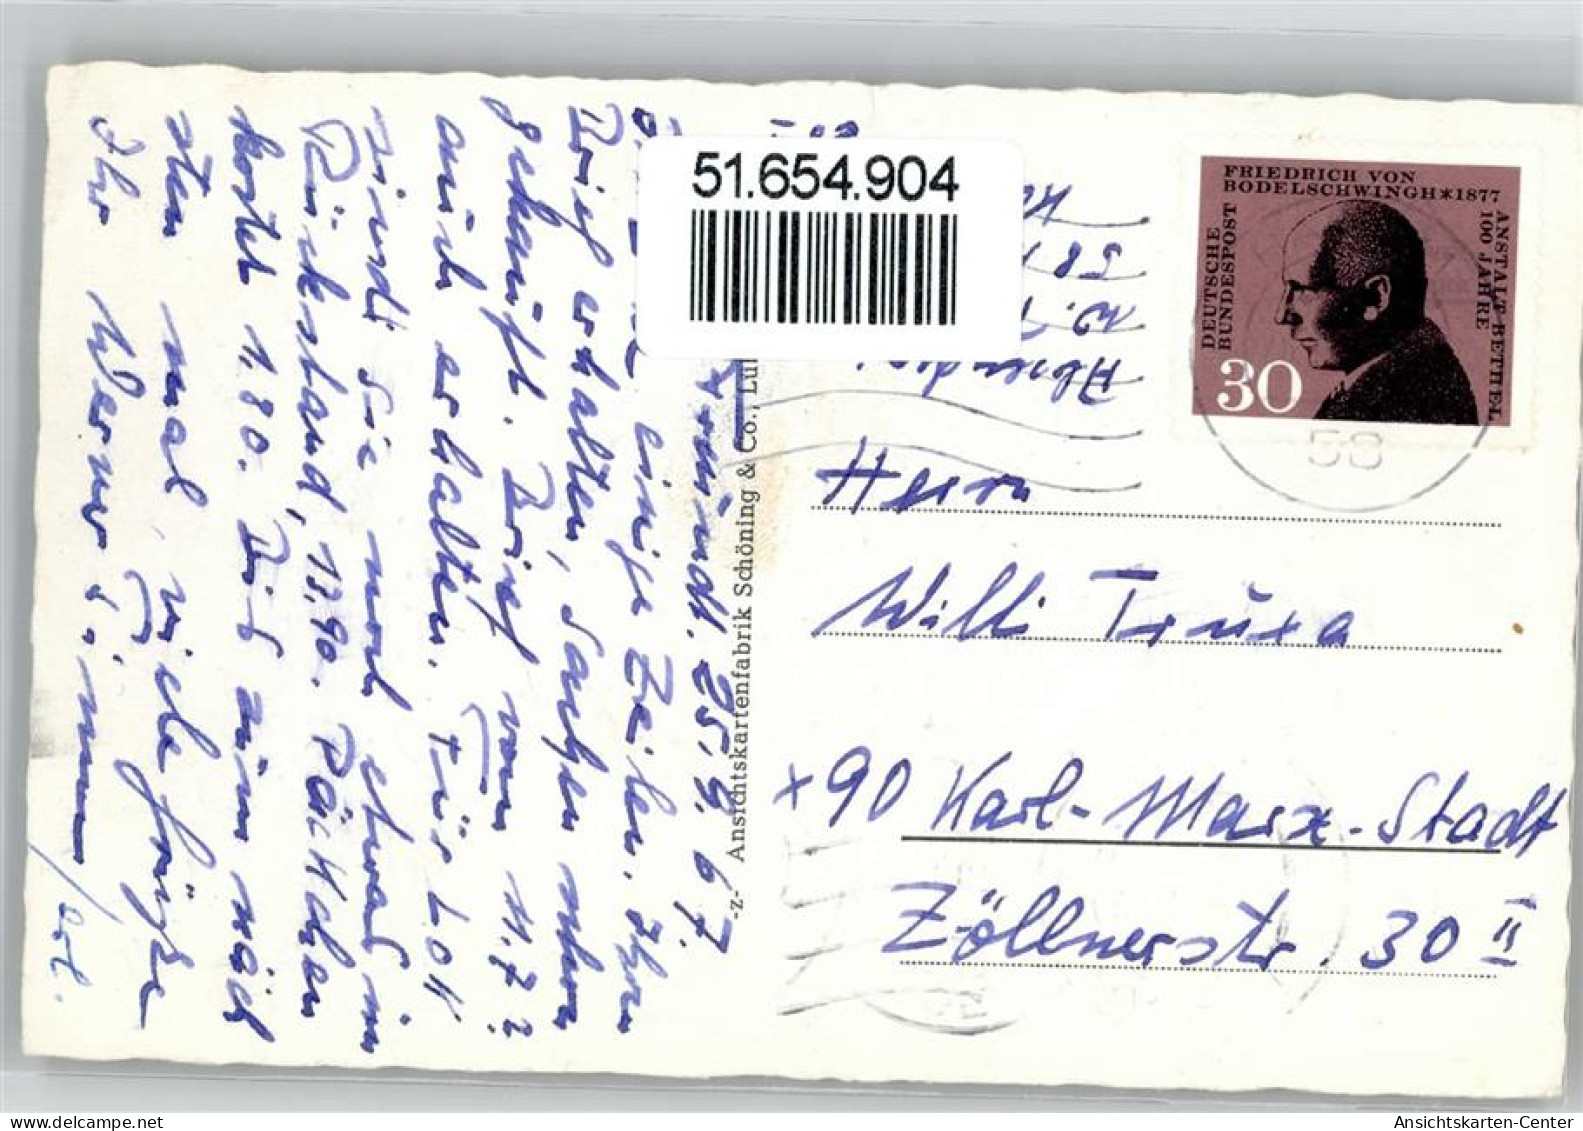 51.654.904
FRIEDRICH VON
BODELSCHWINGH*1877
ANSTALT BETHEL
100 JAHRE
DEUTSCHE
BUNDESPOST
30
58
Absender:
Herrn
Willi Truxa
x 90 Karl-Marx-Stadt
Zöllnerstr. 30 II
-z- Ansichtskartenfabrik Schöning & Co., Lü
25. 8. 67.
einige Zeilen. Ihren
Brief erhalten, Sachen schon
gekauft. Brief vom 11.7?
auch erhalten. Für Lok
sind Sie noch etwas im
Rückstand, 13,90. Päckchen
kostet 1.80. Bis zum näch
sten mal, viele Grüße
Ihr Werner